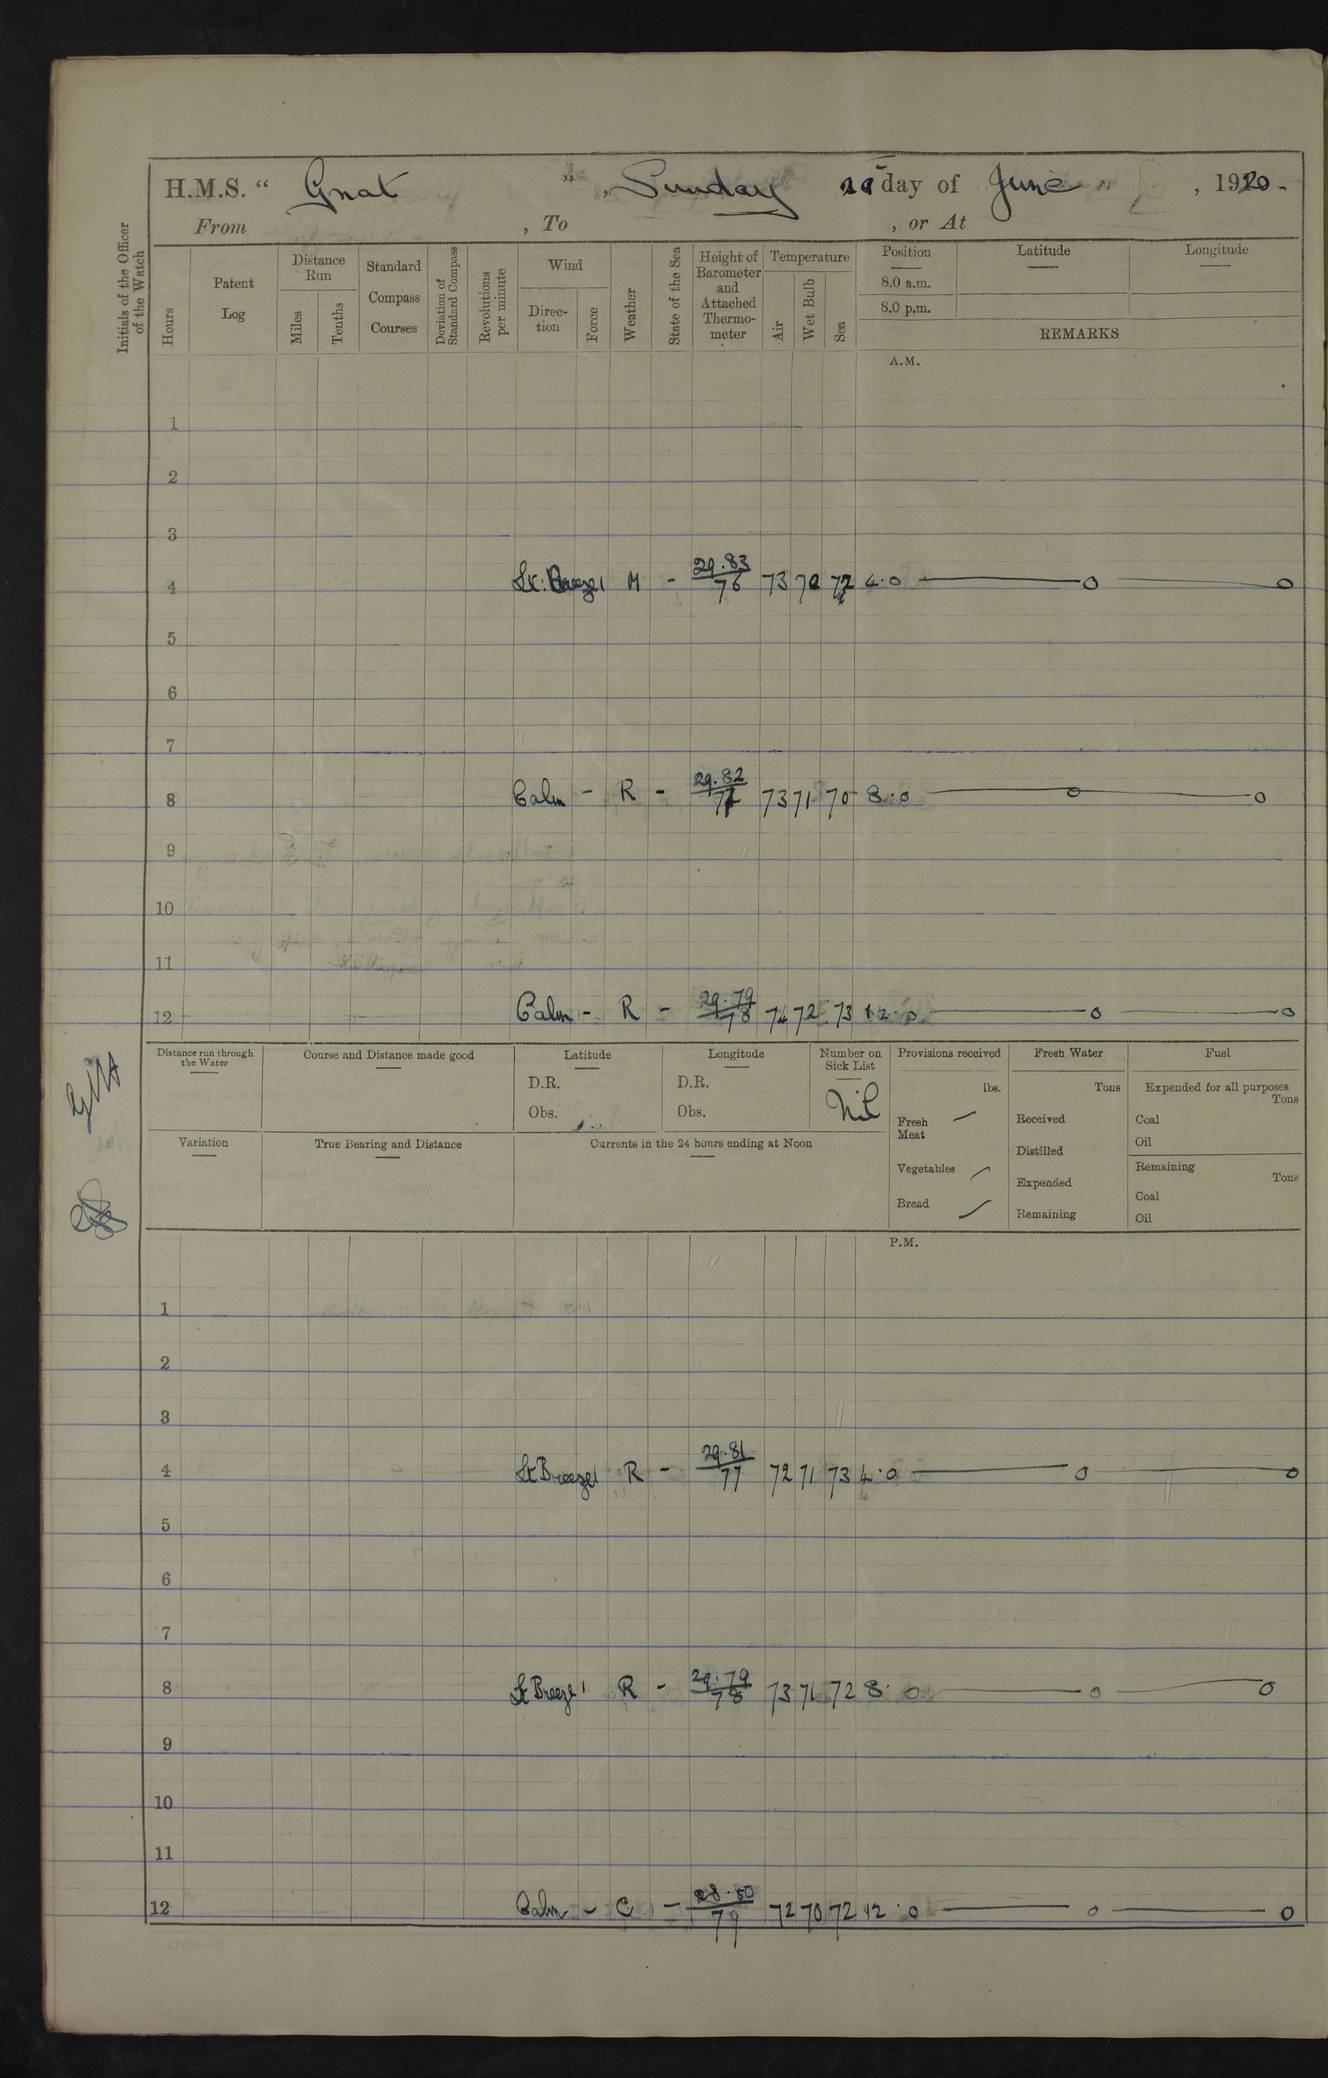 H.M.S. “ Gnat ” , Sunday day of June , 1920.
From , To , or At
Initials of the Officer of the Watch
Hours
Patent Log
Distance Run
Miles
Tenths
Standard Compass Courses
Deviation of Standard Compass
Revolutions per minute
Wind
Direction
Force
Weather
State of the Sea
Height of Barometer and Attached Thermometer
Temperature
Air
Wet Bulb
Sea
Position
8.0 a.m.
8.0 p.m.
Latitude
Longitude
REMARKS
A.M.
1
2
3
4 Lt. Breeze 1 M - 29.83 76 73 72 4.0 — o — o
5
6
7
8 Calm - R - 29.82 73 71 70 8.0 — o — o
9
10
11
12 Calm - R - 29.79 78 74 72 73 12.0 — o — o
Distance run through the Water
Course and Distance made good
Latitude
D.R.
Obs.
Longitude
D.R.
Obs.
Number on Sick List
Nil
Provisions received
lbs.
Fresh Meat —
Vegetables —
Bread —
Fresh Water
Tons
Received
Distilled
Expended
Remaining
Fuel
Expended for all purposes
Tons
Coal
Oil
Remaining
Tons
Coal
Oil
Variation
True Bearing and Distance
Currents in the 24 hours ending at Noon
P.M.
1
2
3
4 Lt Breeze 1 R - 29.81 77 72 71 73 4.0 — o — o
5
6
7
8 Lt Breeze 1 R - 29.79 78 73 71 72 8.0 — o — o
9
10
11
12 Calm - C - 28.80 79 72 70 72 12.0 — o — o